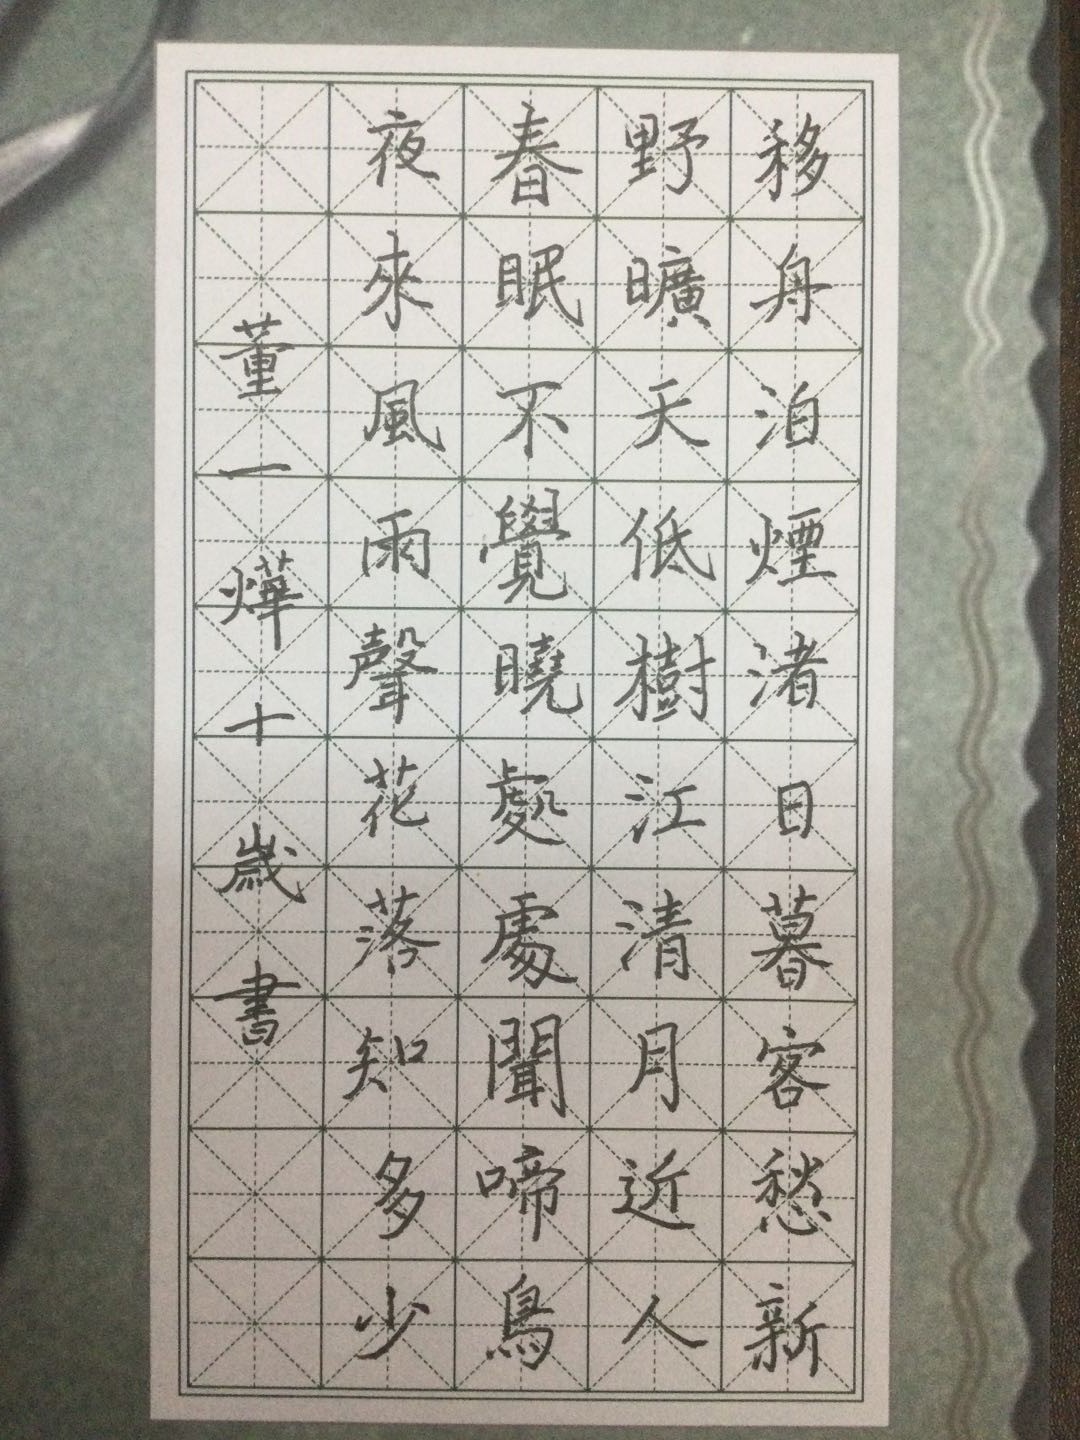 移舟泊煙渚日暮客愁新
野曠天低樹江清月近人
春眠不覺曉處處聞啼鳥
夜來風雨聲花落知多少
董一燁十歲書